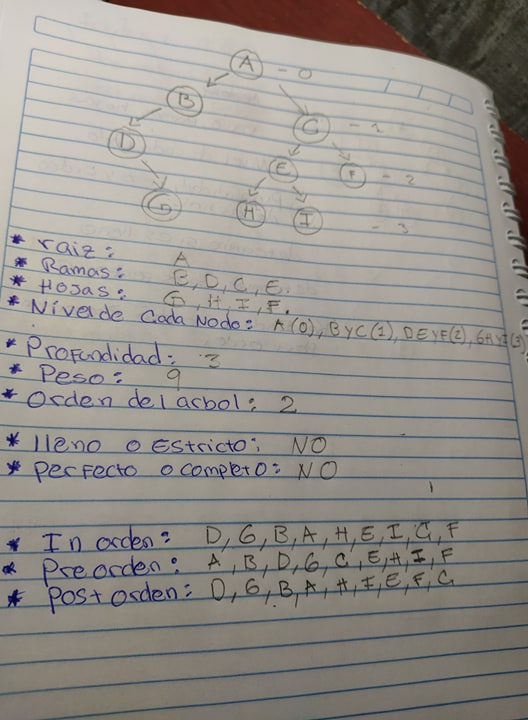 A - 0
B
C - 1
D
E
F - 2
G
H
I
- 3
* raiz: A
* Ramas: B, D, C, E.
* Hojas: G, H, I, F.
* Nivel de Cada Nodo: A(0), B Y C(1), D E Y F(2), G H Y I(3)
* Profundidad: 3
* Peso: 9
* Orden del arbol: 2
* lleno o Estricto: NO
* perfecto o completo: NO
* In orden: D, G, B, A, H, E, I, C, F
* Pre orden: A, B, D, G, C, E, H, I, F
* post orden: D, G, B, A, H, I, E, F, C